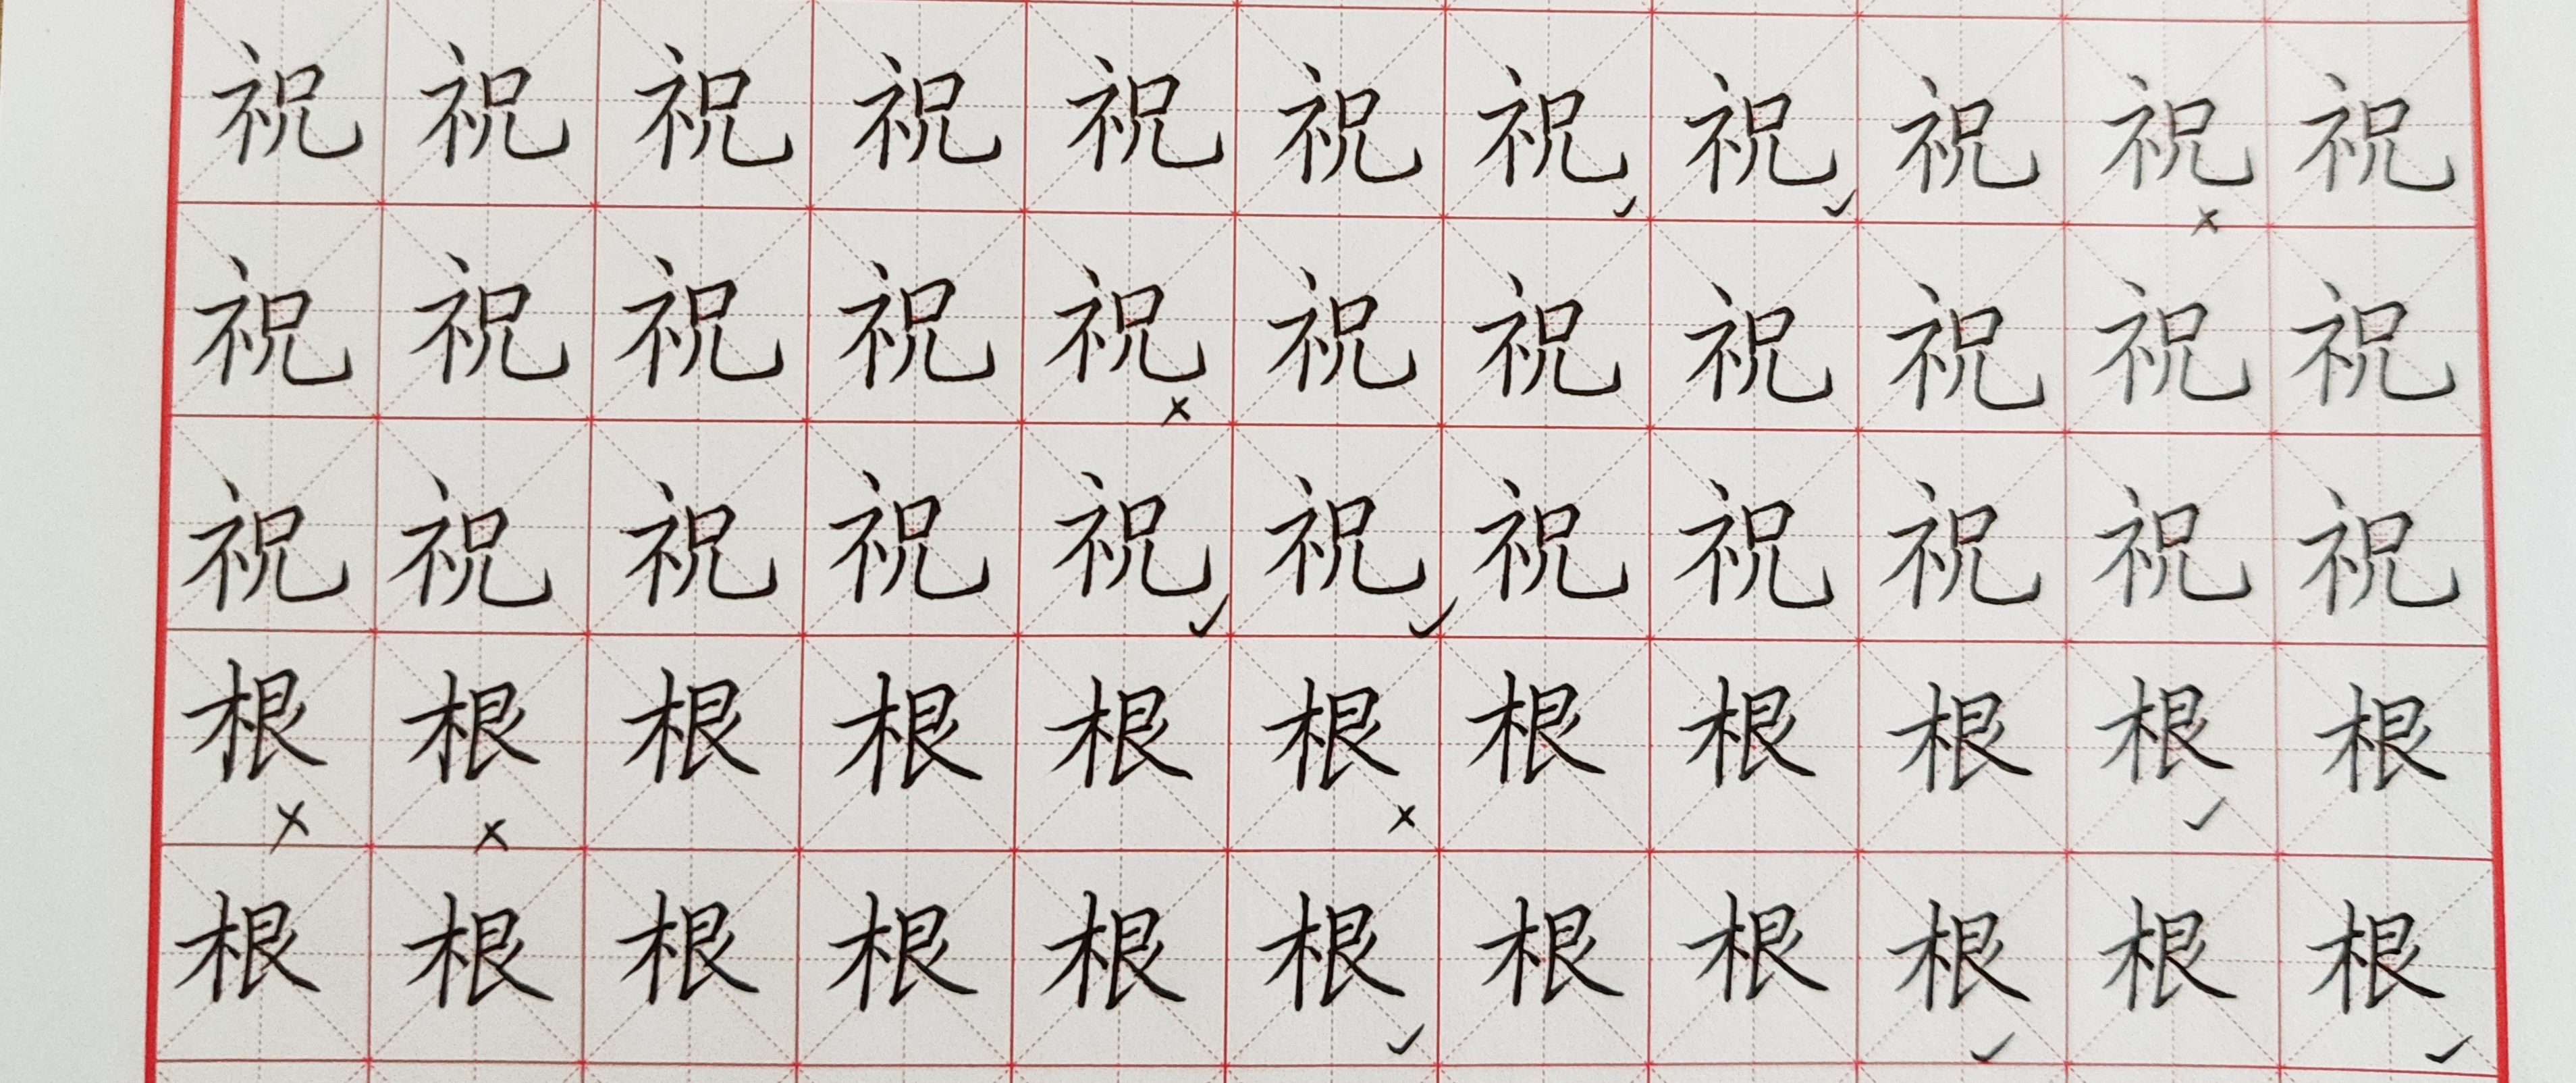 祝祝祝祝祝祝祝祝祝祝祝
祝祝祝祝祝祝祝祝祝祝祝
祝祝祝祝祝祝祝祝祝祝祝
根根根根根根根根根根根
根根根根根根根根根根根